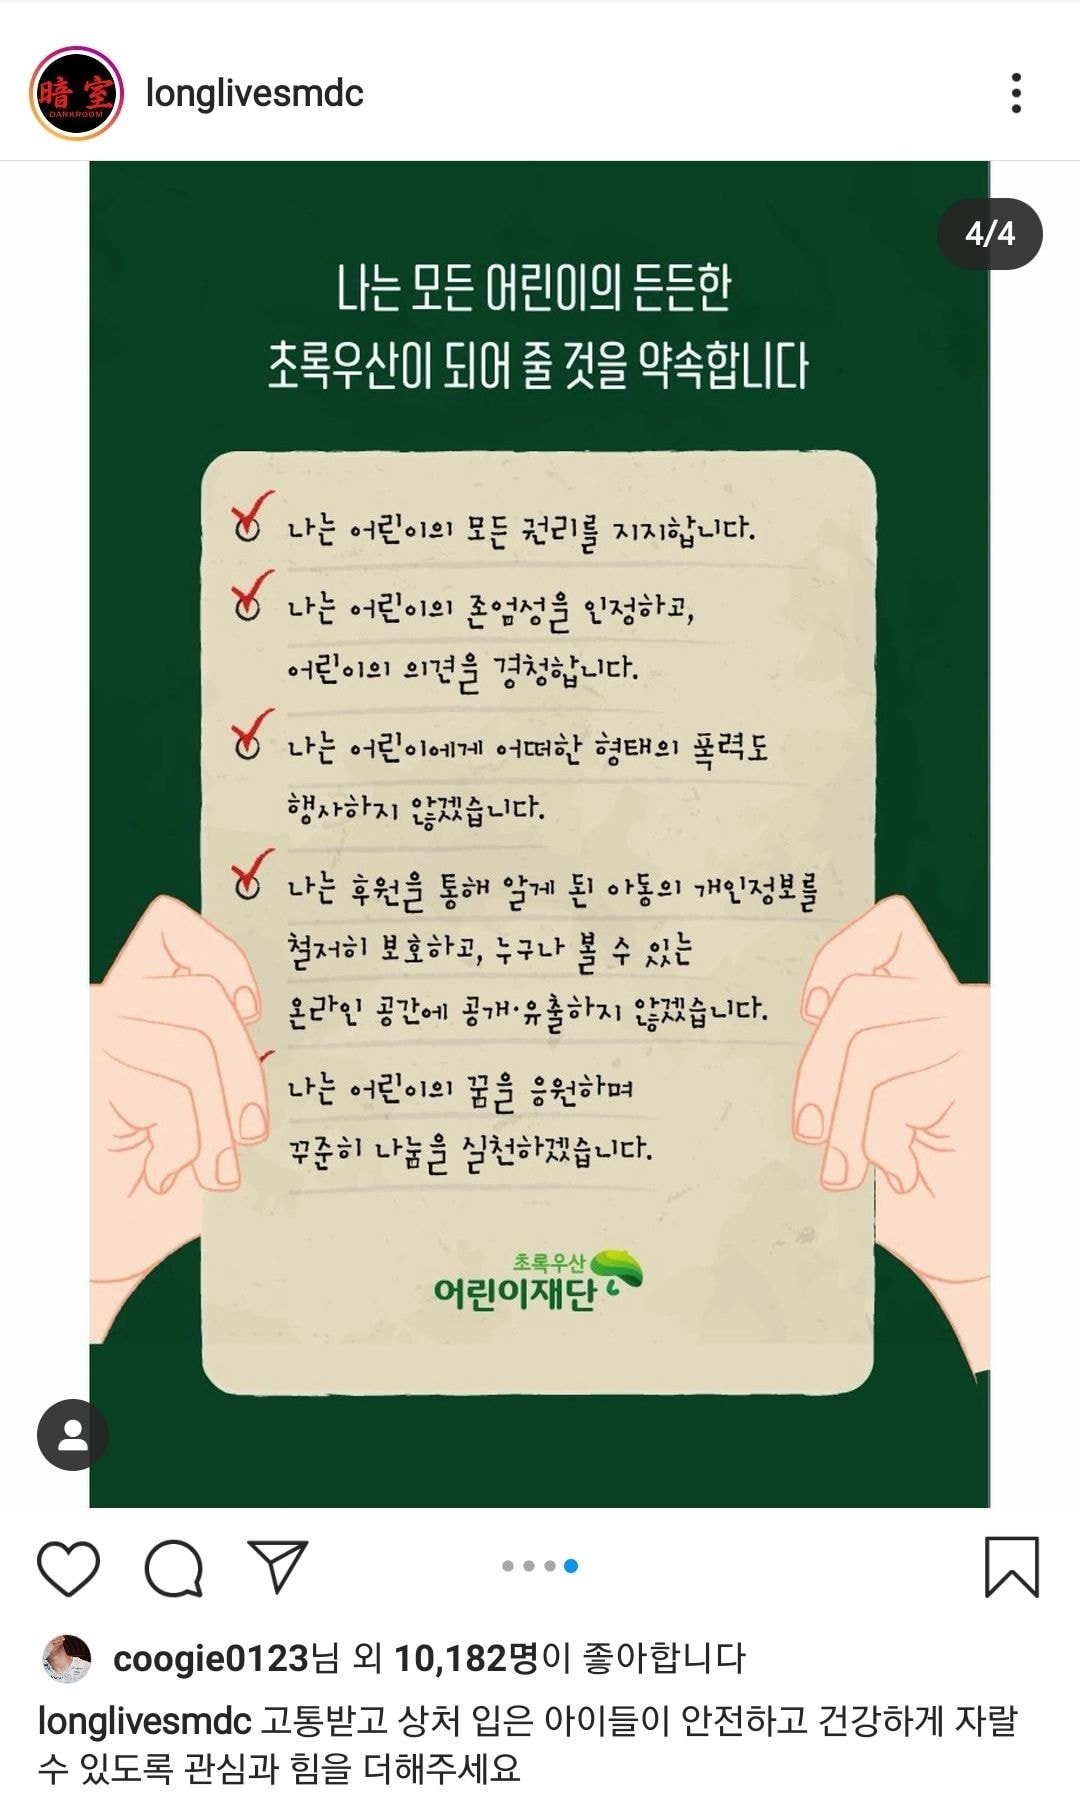 暗室
DARKROOM
longlivesmdc
4/4
나는 모든 어린이의 든든한
초록우산이 되어 줄 것을 약속합니다
나는 어린이의 모든 권리를 지지합니다.
나는 어린이의 존엄성을 인정하고,
어린이의 의견을 경청합니다.
나는 어린이에게 어떠한 형태의 폭력도
행사하지 않겠습니다.
나는 후원을 통해 알게 된 아동의 개인정보를
철저히 보호하고, 누구나 볼 수 있는
온라인 공간에 공개·유출하지 않겠습니다.
나는 어린이의 꿈을 응원하며
꾸준히 나눔을 실천하겠습니다.
초록우산
어린이재단
coogie0123님 외 10,182명이 좋아합니다
longlivesmdc 고통받고 상처 입은 아이들이 안전하고 건강하게 자랄
수 있도록 관심과 힘을 더해주세요